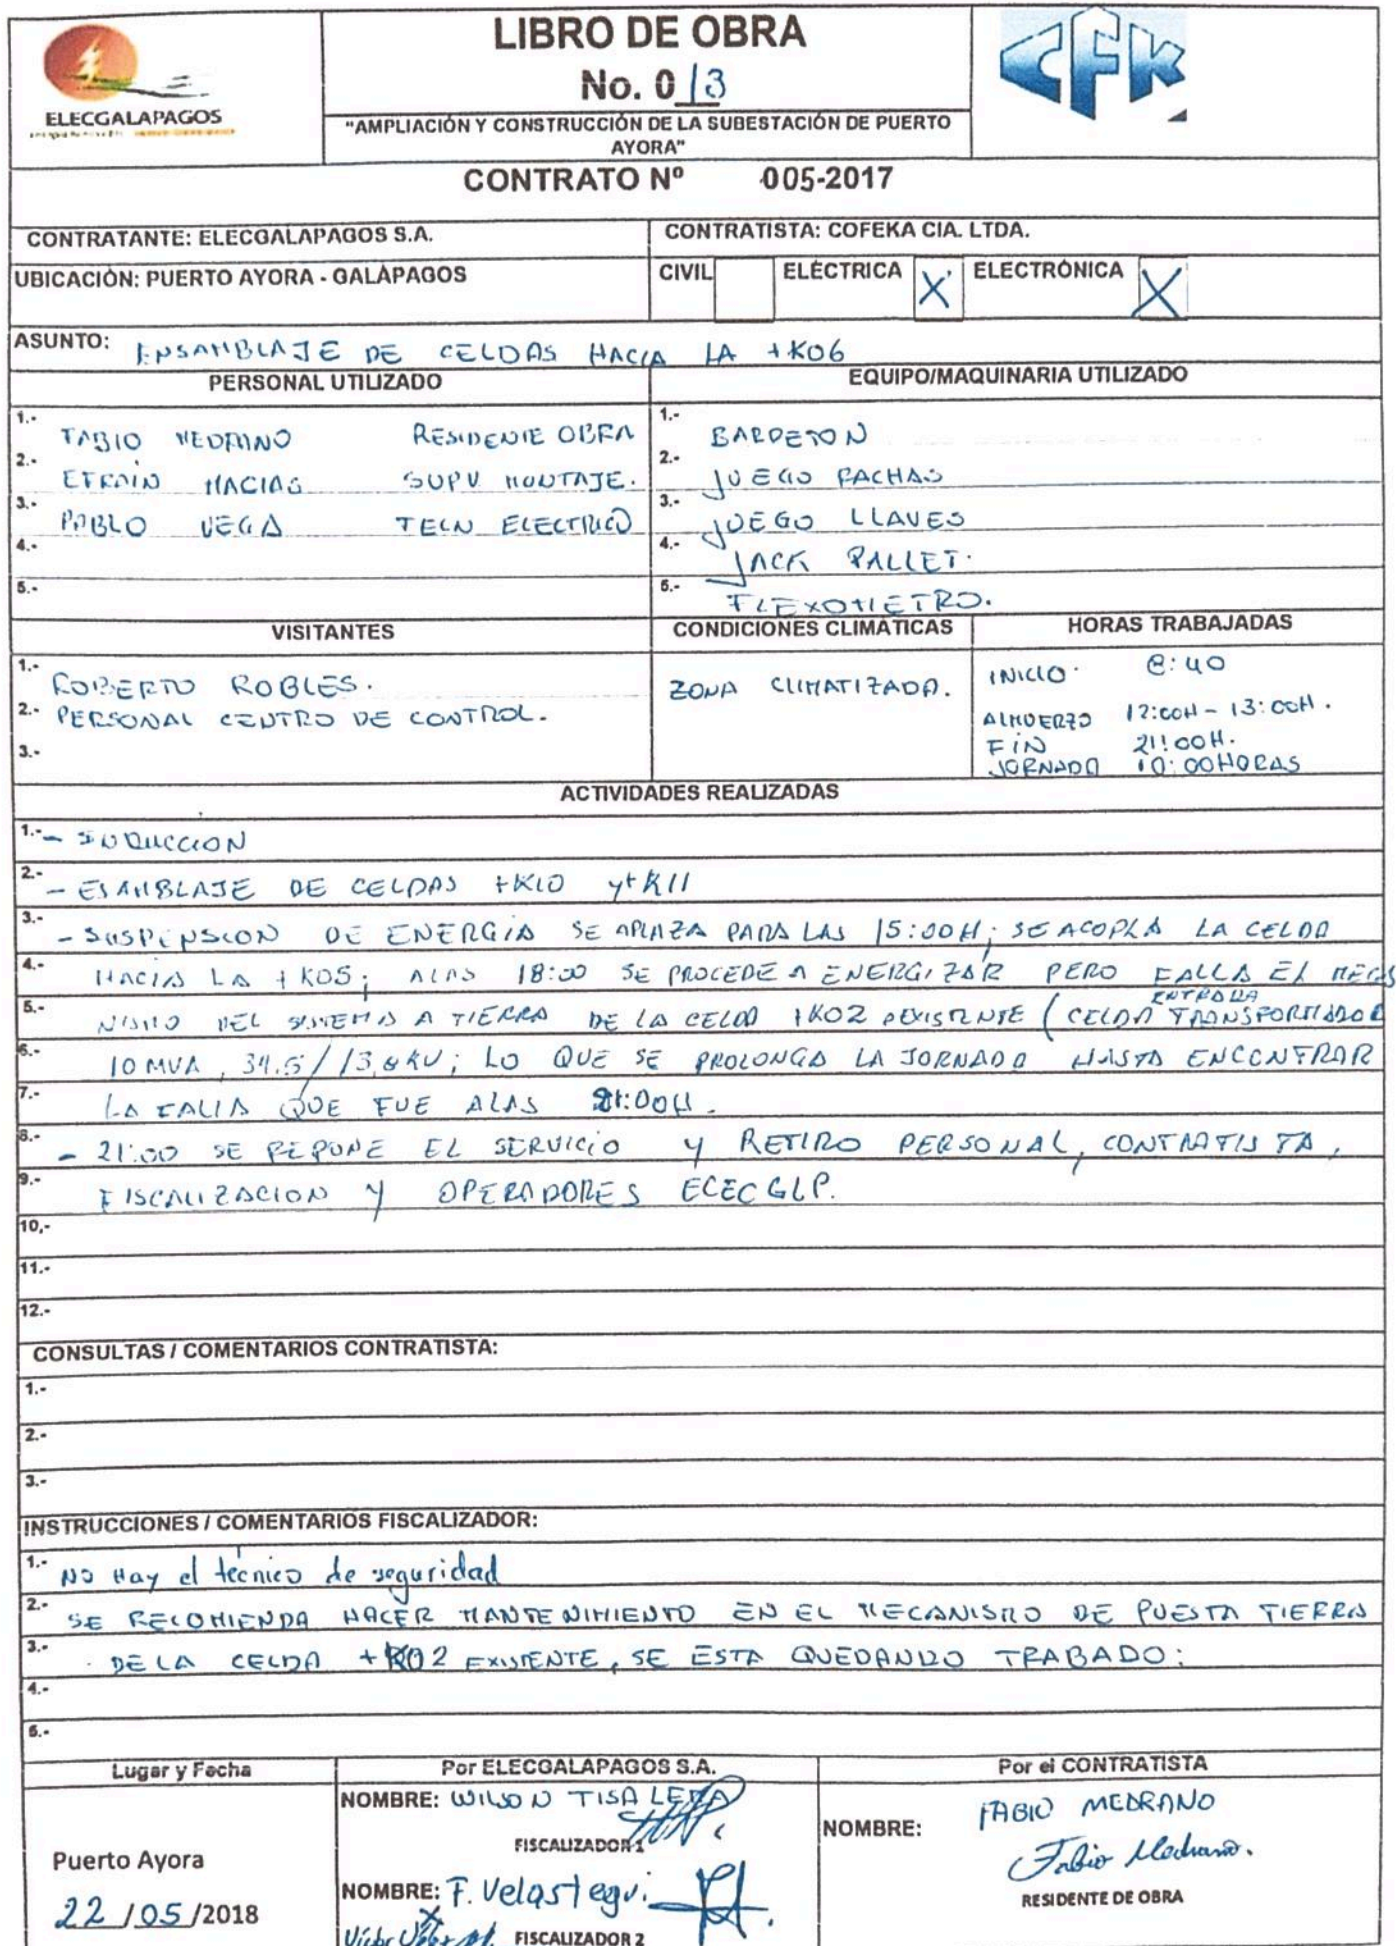 LIBRO DE OBRA
No. 013
ELECGALAPAGOS
"AMPLIACIÓN Y CONSTRUCCIÓN DE LA SUBESTACIÓN DE PUERTO
AYORA"
CFK
CONTRATO Nº 005-2017
CONTRATANTE: ELECGALAPAGOS S.A.
CONTRATISTA: COFEKA CIA. LTDA.
UBICACIÓN: PUERTO AYORA - GALÁPAGOS
CIVIL ELÉCTRICA X ELECTRÓNICA X
ASUNTO: ENSAMBLAJE DE CELDAS HACIA LA +K06
PERSONAL UTILIZADO
EQUIPO/MAQUINARIA UTILIZADO
1.- FABIO MEDRANO RESIDENTE OBRA
2.- EFRAIN MACIAS SUPV MONTAJE.
3.- PABLO VEGA TECN ELECTRICO
4.-
5.-
1.- BARRETON
2.- JUEGO RACHAS
3.- JUEGO LLAVES
4.- JACK PALLET.
5.- FLEXOMETRO.
VISITANTES
CONDICIONES CLIMÁTICAS
HORAS TRABAJADAS
1.- ROBERTO ROBLES.
2.- PERSONAL CENTRO DE CONTROL.
3.-
ZONA CLIMATIZADA.
INICIO. 8:40
ALMUERZO 12:00H - 13:00H.
FIN 21:00H.
JORNADA 10:00HORAS
ACTIVIDADES REALIZADAS
1.- - INDUCCION
2.- - ESAMBLAJE DE CELDAS +K10 y +K11
3.- - SUSPENSION DE ENERGÍA SE APLAZA PARA LAS 15:00H; SE ACOPLA LA CELDA
4.- HACIA LA +K05; ALAS 18:00 SE PROCEDE A ENERGIZAR PERO FALLA EL MECA
5.- NISMO DEL SISTEMA A TIERRA DE LA CELDA +K02 (CELDA ENTRADA TRANSFORMADOR
6.- 10 MVA, 34.5/13.8KV; LO QUE SE PROLONGA LA JORNADA HASTA ENCONTRAR
7.- LA FALLA QUE FUE ALAS 21:00H.
8.- - 21:00 SE REPONE EL SERVICIO Y RETIRO PERSONAL, CONTRATISTA,
9.- FISCALIZACION Y OPERADORES ECECGLP.
10,-
11.-
12.-
CONSULTAS / COMENTARIOS CONTRATISTA:
1.-
2.-
3.-
INSTRUCCIONES / COMENTARIOS FISCALIZADOR:
1.- No Hay el técnico de seguridad
2.- SE RECOMIENDA HACER MANTENIMIENTO EN EL MECANISMO DE PUESTA TIERRA
3.- DE LA CELDA +K02 EXISTENTE, SE ESTA QUEDANDO TRABADO.
4.-
5.-
Lugar y Fecha
Por ELECGALAPAGOS S.A.
Por el CONTRATISTA
NOMBRE: WILSON TISALEMA
FISCALIZADOR 1
NOMBRE: F. Velastegui.
FISCALIZADOR 2
Puerto Ayora
22/05/2018
NOMBRE: FABIO MEDRANO
Fabio Medrano.
RESIDENTE DE OBRA